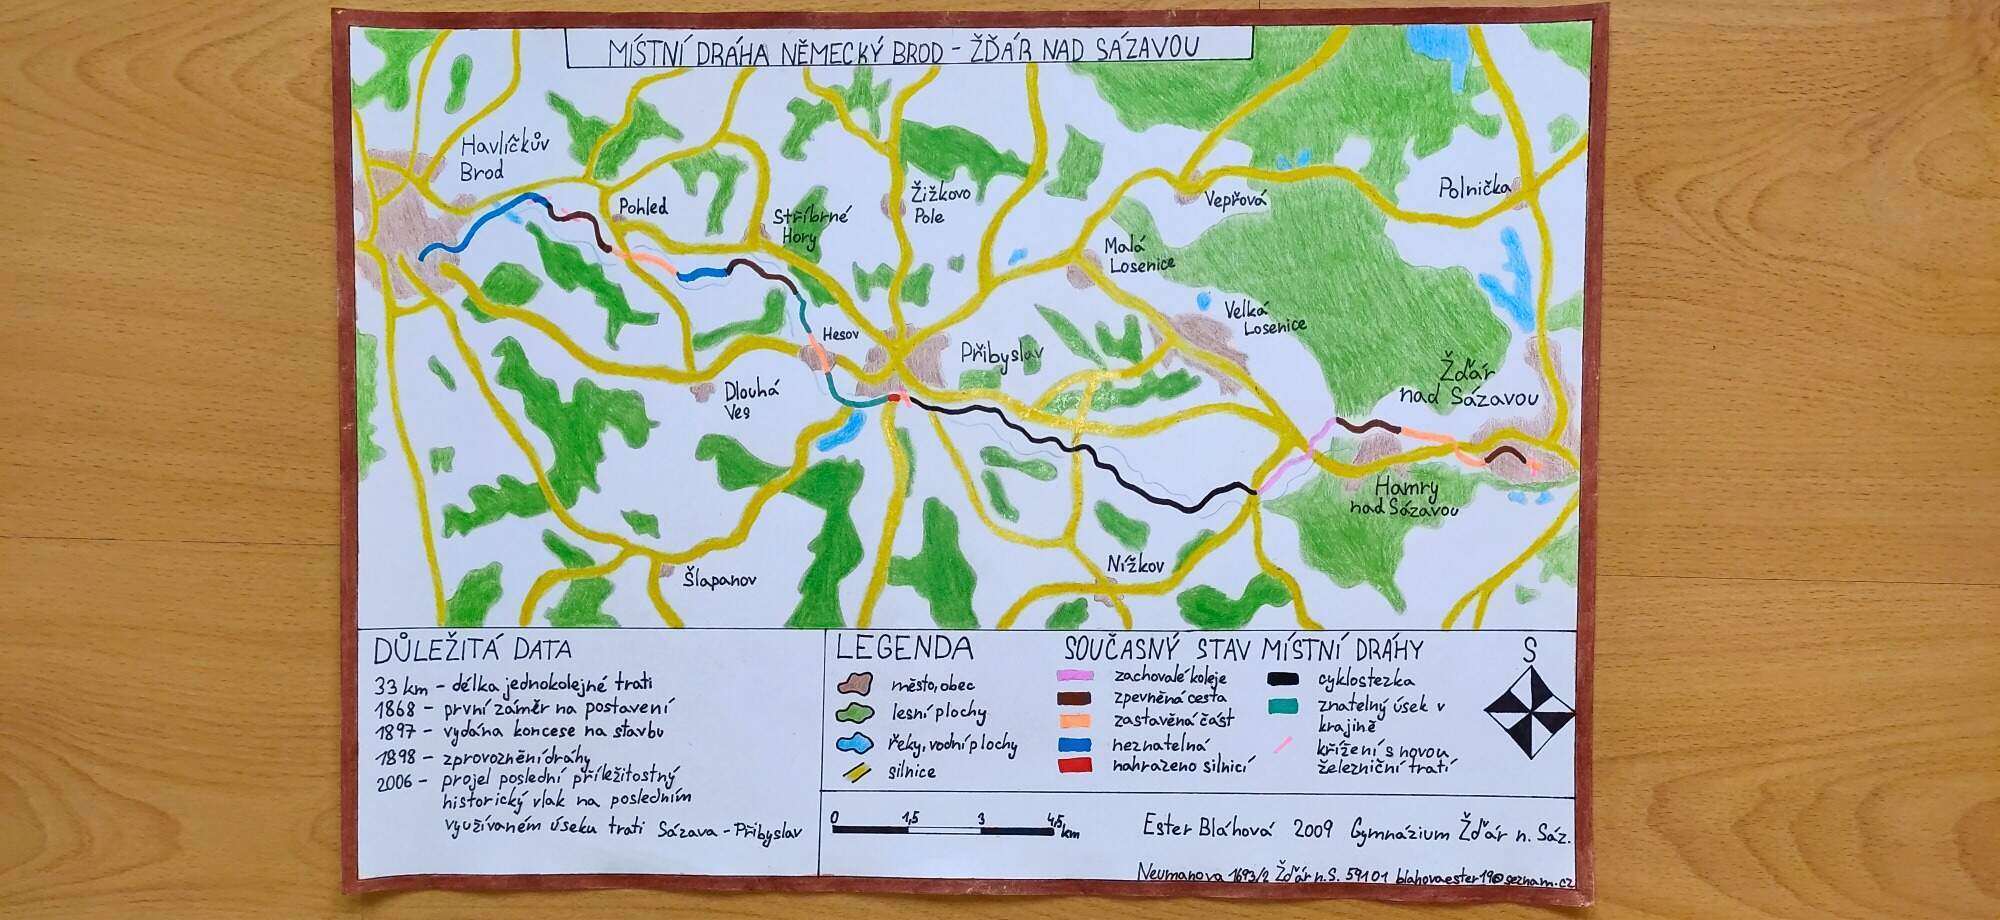 MÍSTNÍ DRÁHA NĚMECKÝ BROD - ŽĎÁR NAD SÁZAVOU
Havlíčkův
Brod
Pohled
Stříbrné
Hory
Žižkovo
Pole
Vepřová
Polnička
Malá
Losenice
Velká
Losenice
Hesov
Přibyslav
Dlouhá
Ves
Žďár
nad Sázavou
Hamry
nad Sázavou
Nížkov
Šlapanov
DŮLEŽITÁ DATA
33 km - délka jednokolejné trati
1868 - první záměr na postavení
1897 - vydána koncese na stavbu
1898 - zprovoznění dráhy
2006 - projel poslední příležitostný
historický vlak na posledním
využívaném úseku trati Sázava - Přibyslav
LEGENDA
město, obec
lesní plochy
řeky, vodní plochy
silnice
SOUČASNÝ STAV MÍSTNÍ DRÁHY
zachovalé koleje
zpevněná cesta
zastavěná část
neznatelná
nahrazeno silnicí
cyklostezka
znatelný úsek v
krajině
křížení s novou
železniční tratí
S
0 1,5 3 4,5 km
Ester Bláhová 2009 Gymnázium Žďár n. Sáz.
Neumanova 1693/2 Žďár n.S. 591 01 blahovaester19@seznam.cz